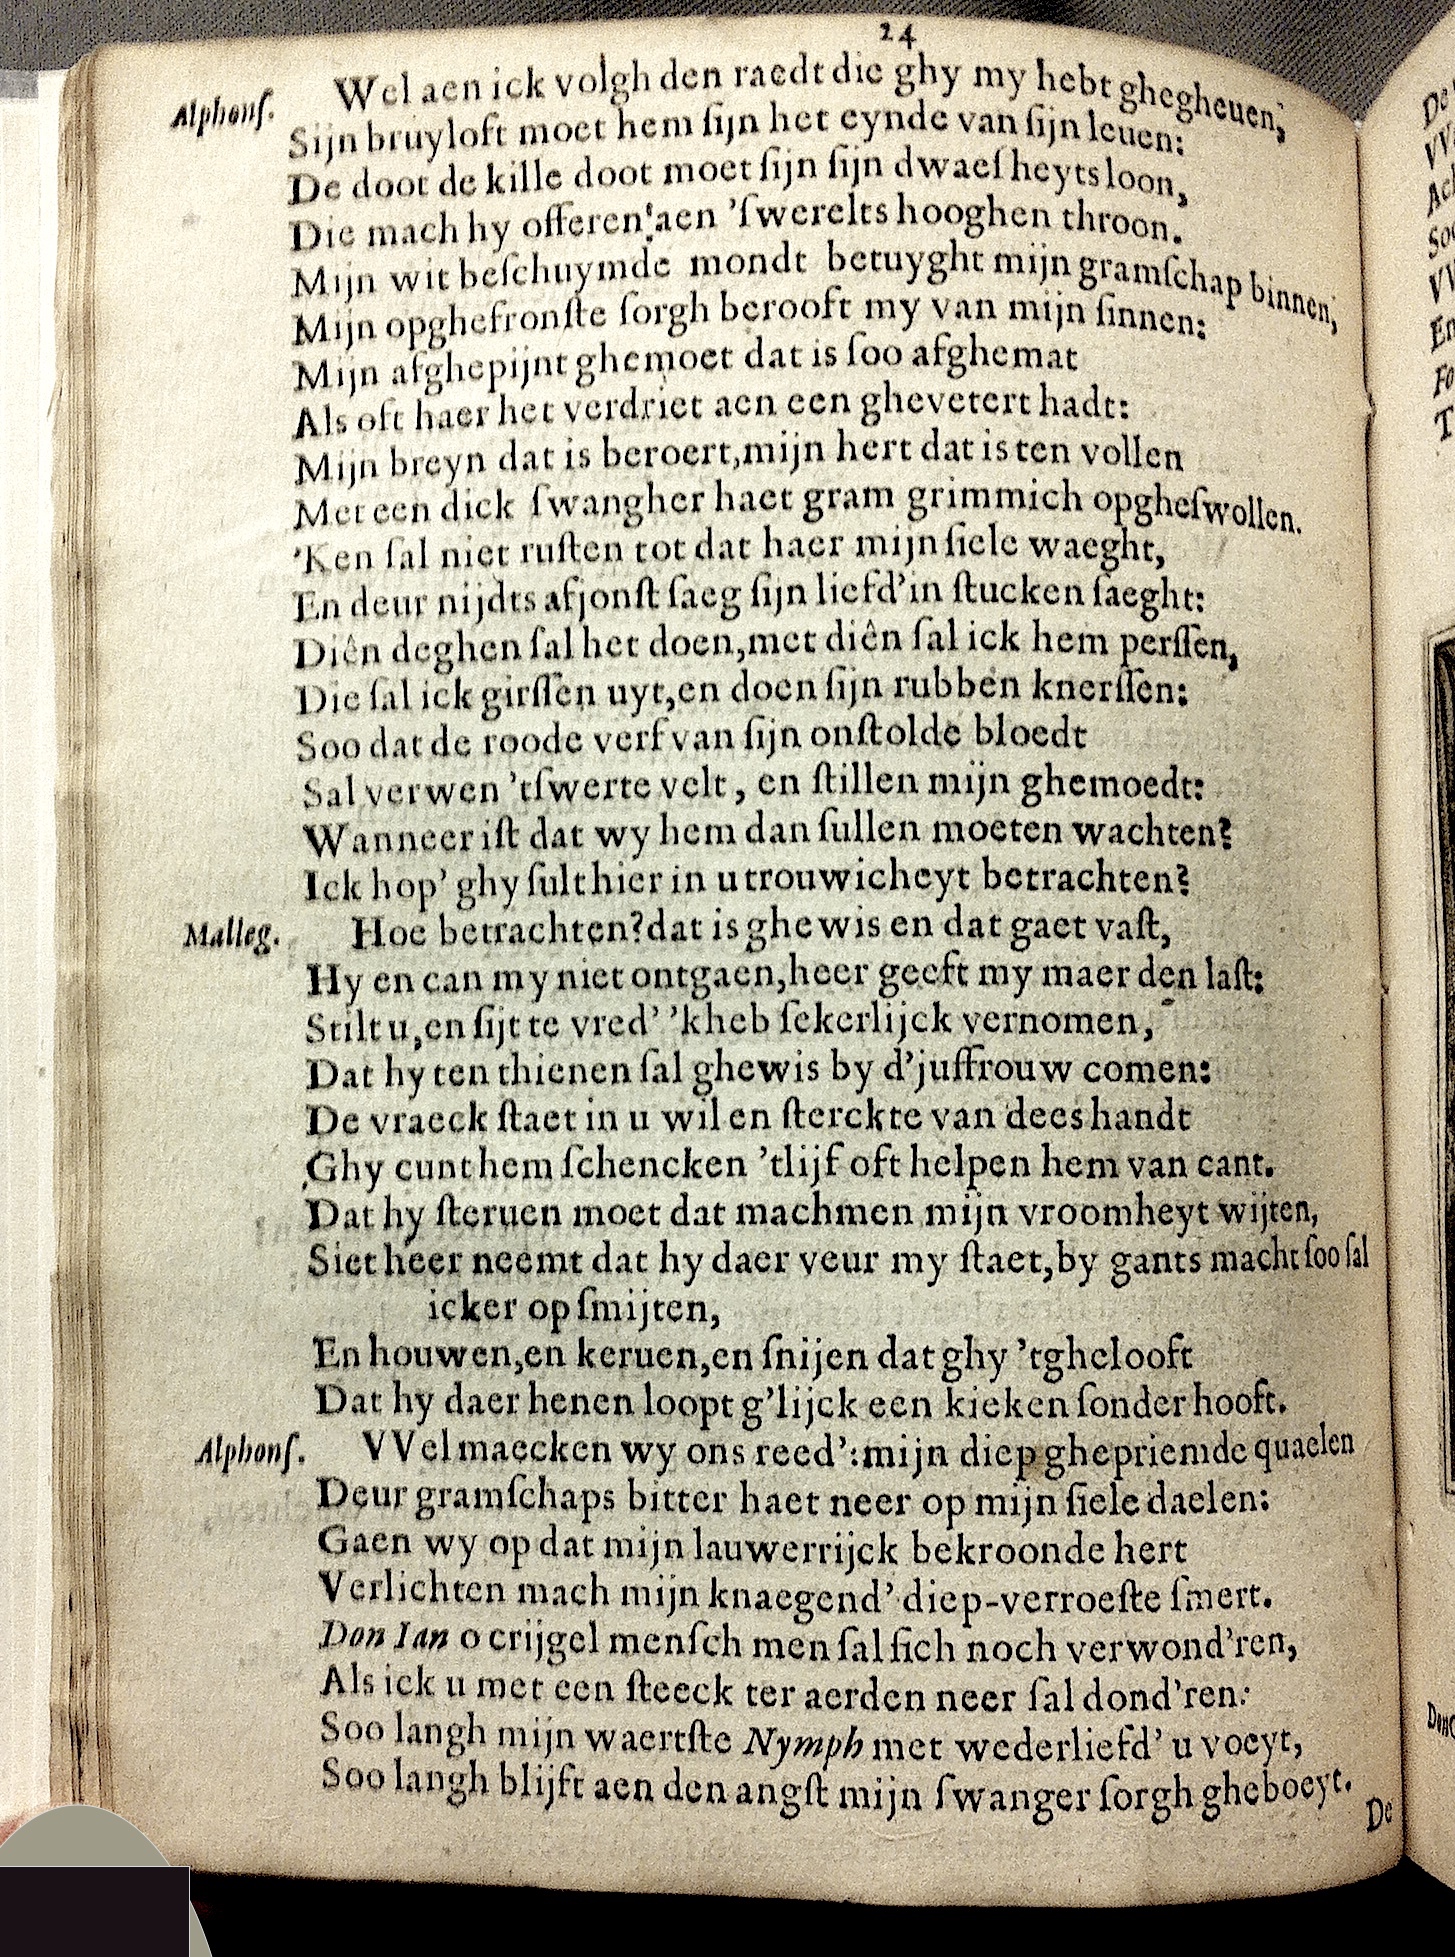 24
Alphonſ. Wel aen ick volgh den raedt die ghy my hebt ghegheuen,
Sijn bruyloft moet hem ſijn het eynde van ſijn leuen:
De doot de kille doot moet ſijn ſijn dwaeſheyts loon,
Die mach hy offeren aen 'ſwerelts hooghen throon.
Mijn wit beſchuymde mondt betuyght mijn gramſchap binnen,
Mijn opghefronſte ſorgh berooft my van mijn ſinnen:
Mijn afghepijnt ghemoet dat is ſoo afghemat
Als oft haer het verdriet aen een ghevetert hadt:
Mijn breyn dat is beroert,mijn hert dat is ten vollen
Met een dick ſwangher haet gram grimmich opgheſwollen.
'Ken ſal niet ruſten tot dat haer mijn ſiele waeght,
En deur nijdts afjonſt ſaeg ſijn liefd'in ſtucken ſaeght:
Diên deghen ſal het doen,met diên ſal ick hem perſſen,
Die ſal ick girſſen uyt,en doen ſijn rubben knerſſen:
Soo dat de roode verf van ſijn onſtolde bloedt
Sal verwen 'tſwerte velt, en ſtillen mijn ghemoedt:
Wanneer iſt dat wy hem dan ſullen moeten wachten?
Ick hop' ghy ſult hier in u trouwicheyt betrachten?
Malleg. Hoe betrachten?dat is ghewis en dat gaet vaſt,
Hy en can my niet ontgaen,heer geeft my maer den laſt:
Stilt u,en ſijt te vred' 'kheb ſekerlijck vernomen,
Dat hy ten thienen ſal ghewis by d'juffrouw comen:
De vraeck ſtaet in u wil en ſterckte van dees handt
Ghy cunt hem ſchencken 'tlijf oft helpen hem van cant.
Dat hy ſteruen moet dat machmen mijn vroomheyt wijten,
Siet heer neemt dat hy daer veur my ſtaet,by gants macht ſoo ſal
icker op ſmijten,
En houwen,en keruen,en ſnijen dat ghy 'tghelooft
Dat hy daer henen loopt g'lijck een kieken ſonder hooft.
Alphonſ. VVel maecken wy ons reed':mijn diep ghepriemde quaelen
Deur gramſchaps bitter haet neer op mijn ſiele daelen:
Gaen wy op dat mijn lauwerrijck bekroonde hert
Verlichten mach mijn knaegend' diep-verroeſte ſmert.
Don Ian o crijgel menſch men ſal ſich noch verwond'ren,
Als ick u met een ſteeck ter aerden neer ſal dond'ren:
Soo langh mijn waertſte Nymph met wederliefd' u voeyt,
Soo langh blijft aen den angſt mijn ſwanger ſorgh gheboeyt.
De